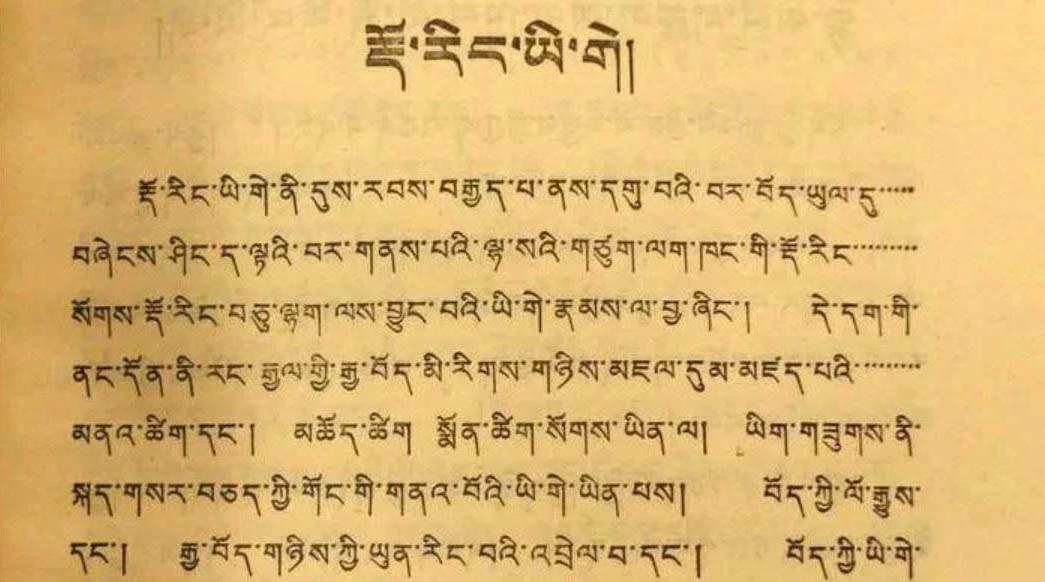 རྡོ་རིང་ཡི་གེ།
རྡོ་རིང་ཡི་གེ་ནི་དུས་རབས་བརྒྱད་པ་ནས་དགུ་བའི་བར་བོད་ཡུལ་དུ་་་་་
བཞེངས་ཤིང་ད་ལྟའི་བར་གནས་པའི་ལྷ་སའི་གཙུག་ལག་ཁང་གི་རྡོ་རིང་་་་་་་་་
སོགས་རྡོ་རིང་བཅུ་ལྷག་ལས་བྱུང་བའི་ཡི་གེ་རྣམས་ལ་བྱ་ཞིང་། དེ་དག་གི་
ནང་དོན་ནི་རང་རྒྱལ་གྱི་རྒྱ་བོད་མི་རིགས་གཉིས་མཇལ་དུམ་མཛད་པའི་་་་་་་་
མནའ་ཚིག་དང་། མཆོད་ཚིག སྨོན་ཚིག་སོགས་ཡིན་ལ། ཡིག་གཟུགས་ནི་
སྐད་གསར་བཅད་ཀྱི་གོང་གི་གནའ་བོའི་ཡི་གེ་ཡིན་པས། བོད་ཀྱི་ལོ་རྒྱུས་
དང་། རྒྱ་བོད་གཉིས་ཀྱི་ཡུན་རིང་བའི་འབྲེལ་བ་དང་། བོད་ཀྱི་ཡི་གེ་